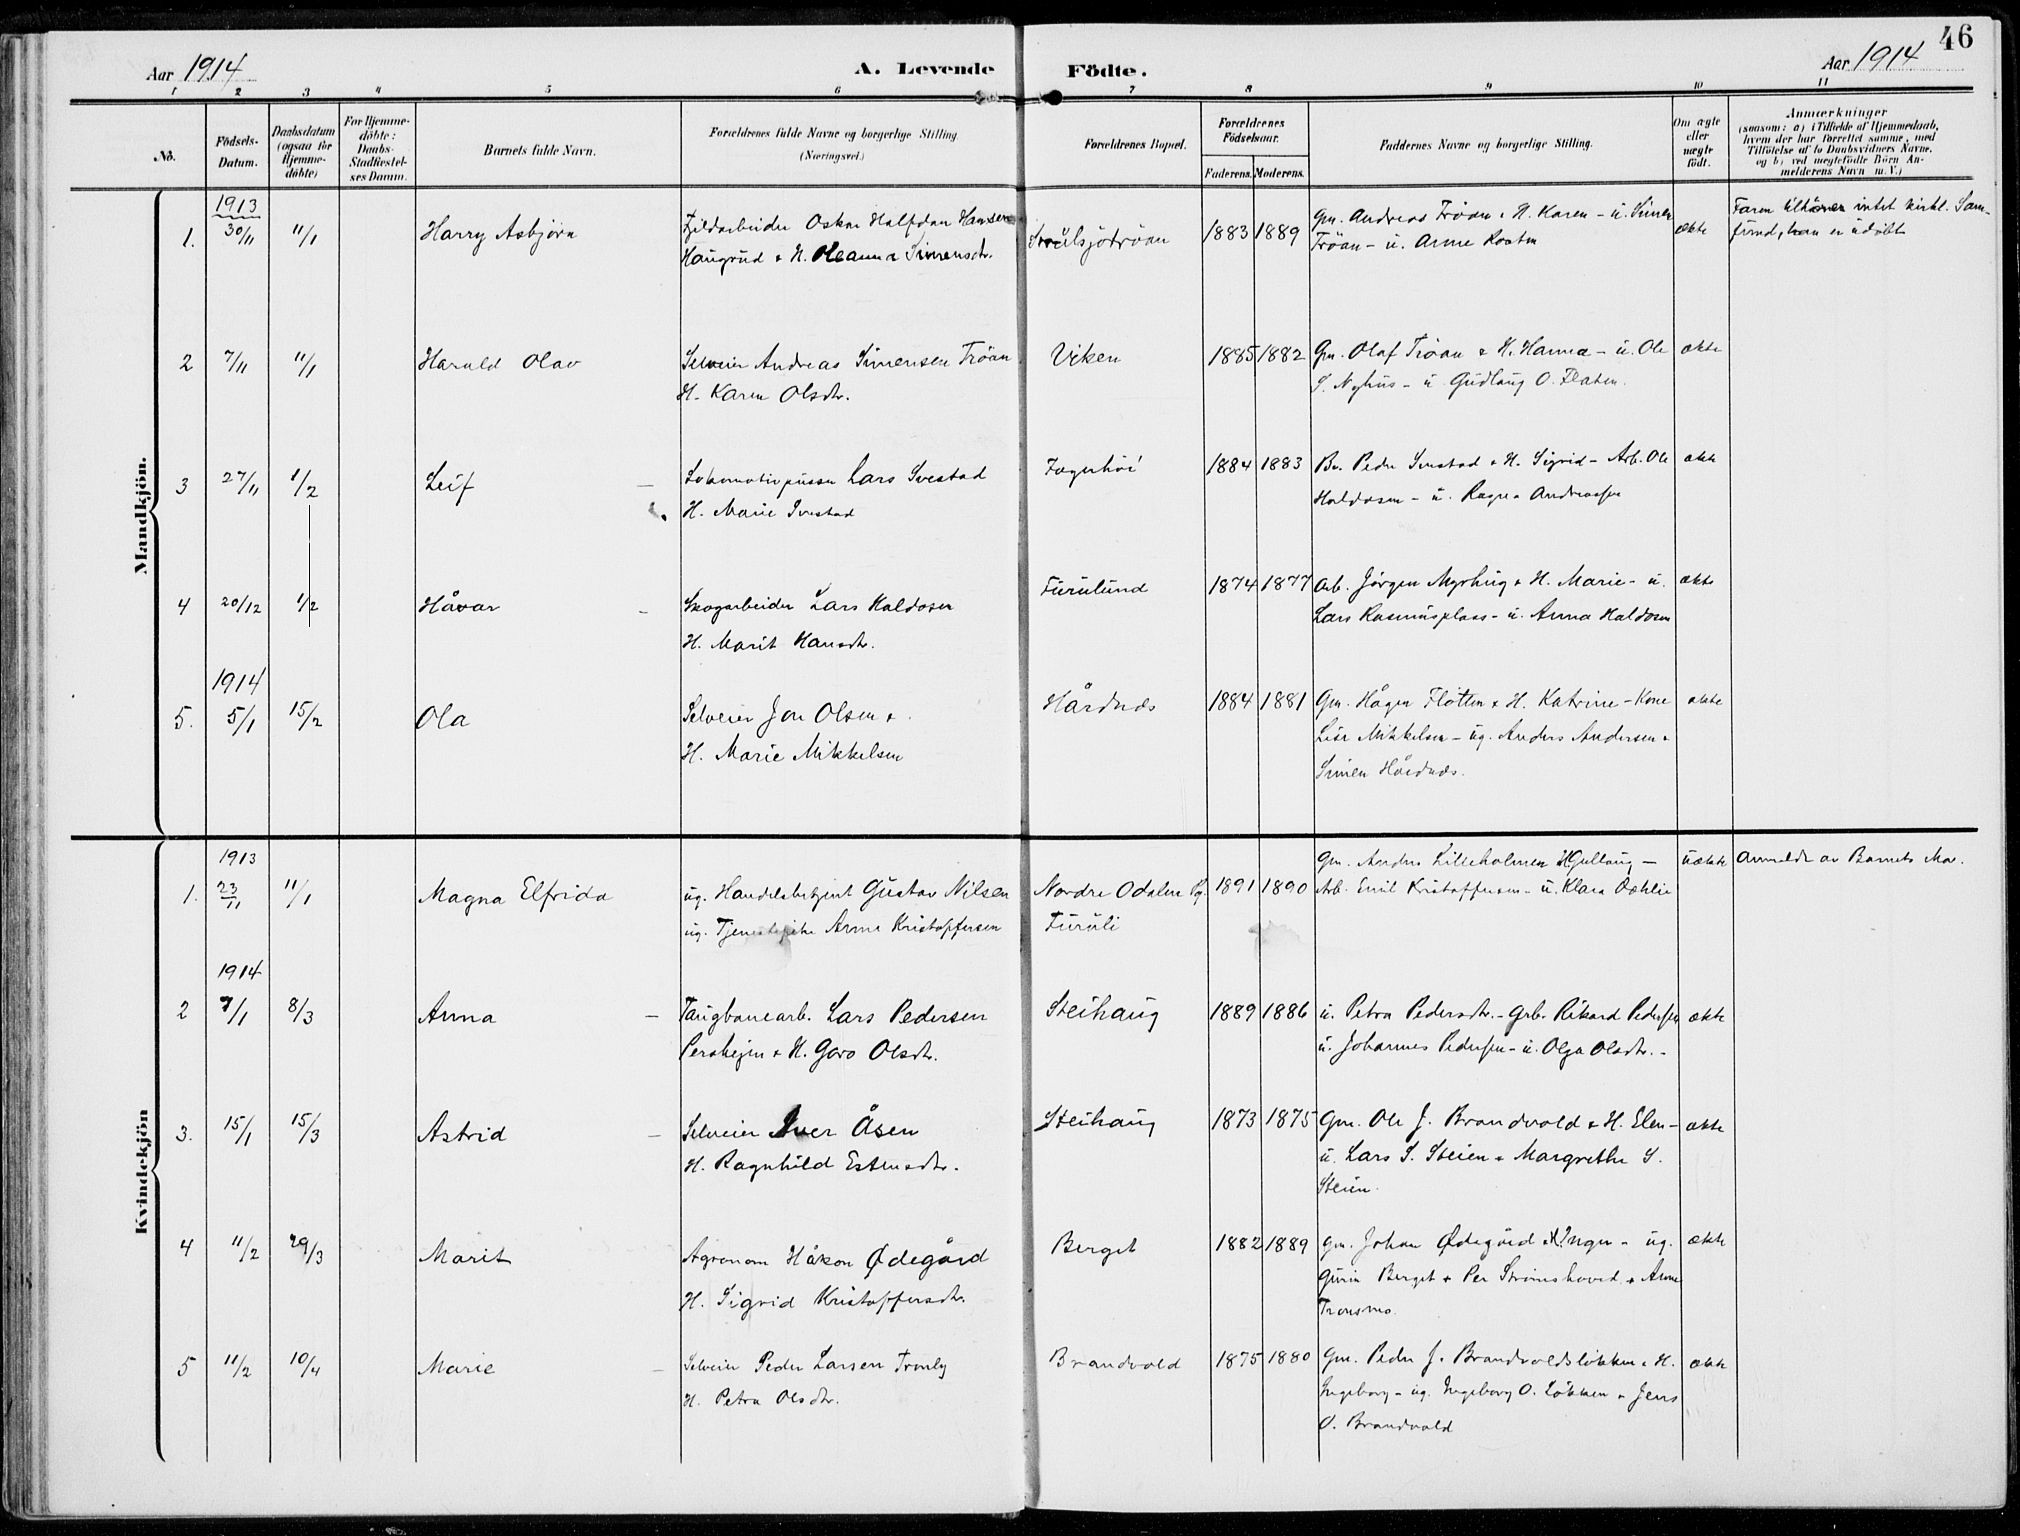 46
Aar 1914 A. Levende Födte. Aar 1914
1 2 3 4 5 6 7 8 9 10 11
No.
Födsels-
Datum.
Daabsdatum
(ogsaa for
Hjemme-
döbte)
For Hjemme-
döbte:
Daabs-
Stadfæstel-
ses Datum.
Barnets fulde Navn.
Forældrenes fulde Navne og borgerlige Stilling.
(Næringsvei.)
Forældrenes Bopæl.
Forældrenes
Födselsaar.
Faderens. Moderens.
Faddernes Navne og borgerlige Stilling.
Om ægte
eller
uægte
födt.
Anmærkninger
(saasom: a) i Tilfælde af Hjemmedaab,
hvem der har forrettet samme, med
Tilföielse af to Daabsvidners Navne,
og b) ved uægtefödte Börn An-
melderens Navn m. V.)
Mandkjön.
1913
1. 30/11 11/1 Harry Asbjörn
Oskar Halfdan Hansen
Haugrud & H. Oleanna Simensdtr.
1883 1889
Gm. Andreas Tröan & H. Karen - u. Simen
Tröan - u. Anne
ækte
Faren tilhörer intet kirkl. Sam-
fund, han er udöbt
2 7/11 11/1 Harald Olav
Selveier Andreas Simensen Tröan
H. Karen Olsdtr.
Viken
1885 1882
Gm. Olaf Tröan & H. Hanna - u. Ole
S. Nyhus - u. Gudlaug O. Flaten.
ækte
3 27/11 1/2 Leif
Lokomotivpusser Lars Svestad
H. Marie Svestad
Fagerhöi
1884 1883
Peder Svestad & H. Sigrid - Arb. Ole
Haldosen - u. Ragna Andreassen
ækte
4 20/12 1/2 Håvar
Skogarbeider Lars Haldosen
H. Marit Hansdtr.
Furulund
1874 1877
Arb. Jörgen Myrhug & H. Marie - u.
Lars Rasmusplass - u. Anna Haldosen
ækte
1914
5. 5/1 15/2 Ola
Selveier Jon Olsen &
H. Marie Mikkelsen
Hårdnes
1884 1881
Gm. Hågen Flötten & H. Katrine - Kone
Lise Mikkelsen - ug. Anders Andersen &
Simen Hårdnes.
ækte
Kvindekjön
1913
1. 23/11 11/1 Magna Elfrida
ug. Handelsbetjent Gustav Nilsen
ug. Tjenestepike Anna Kristoffersen
Nordre Odalen Pg.
Furuli
1891 1890
Gm. Anders Lilleholmen & H. Gullaug -
Arb. Emil Kristoffersen - u. Klara Dæhlie
uækte
Anmeldt av Barnets Mor.
1914
2 7/1 8/3 Anna
Taugbanearb. Lars Pedersen
Pershejen & H. Goro Olsdtr.
Steihaug
1889 1886
u. Petra Pedersdtr. - Grb. Rikard Pedersen
u. Johannes Pedersen - u. Olga Olsdtr. -
ækte
3. 15/1 15/3 Astrid
Selveier Iver Åsen
H. Ragnhild Estensdtr.
Steihaug
1873 1875
Gm. Ole J. Brandvold & H. Elen -
u. Lars S. Steien & Margrethe S.
Steien.
ækte
4 11/2 29/3 Marit
Agronom Håkon Ødegård
H. Sigrid Kristoffersdtr.
Berget
1882 1889
Gm. Johan Ødegård & H. Inger - ug.
Guri Berget & Per Strömshoved & Anne
Tronsmo.
ækte
5 11/2 10/4 Marie
Selveier Peder Larsen Tronly
H. Petra Olsdtr.
Brandvold
1875 1880
Gm. Peder J. Brandvoldslökken & H.
Ingeborg - ug. Ingeborg O. Lökken & Jens
O. Brandvold
ækte